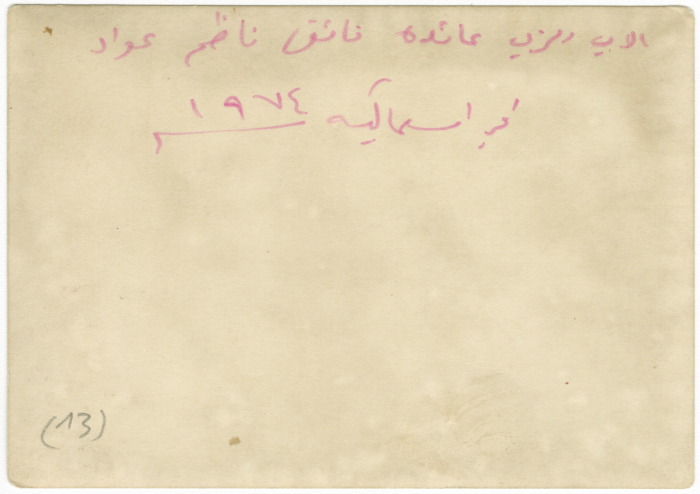 الاب رمزي عائده فائق ناظم عواد
اسماكيه ١٩٧٤
(13)